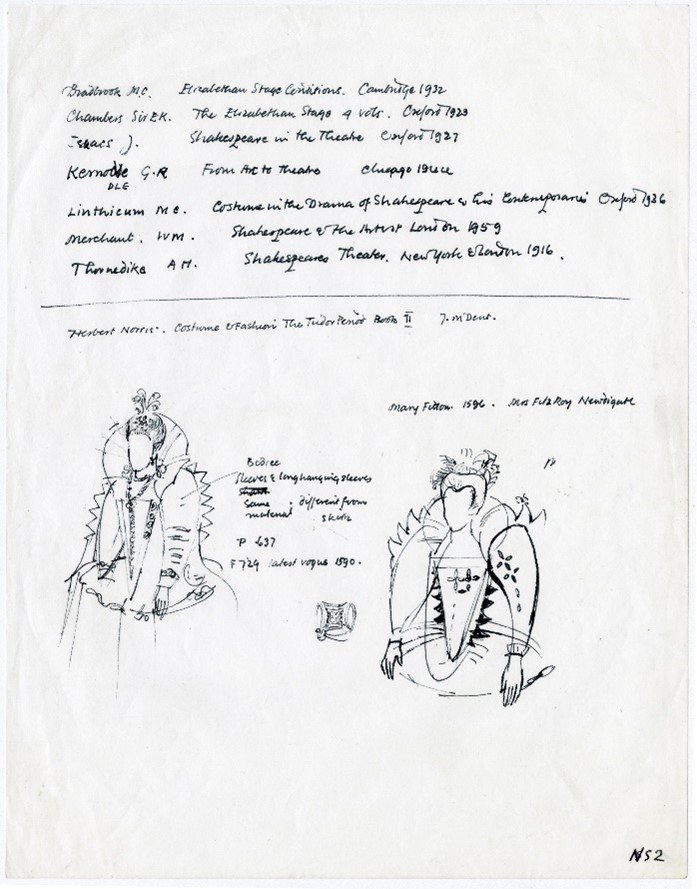 Bradbrook M.C. Elizabethan Stage Conditions. Cambridge 1932
Chambers Sir E.K. The Elizabethan Stage 4 vols. Oxford 1923
Isaacs J. Shakespeare in the Theatre Oxford 1927
Kernodle G.R From Art to Theatre Chicago
DLE
Linthicum M C. Costume in the Drama of Shakespeare & his Contemporaries Oxford 1936
Merchant. WM. Shakespeare & the Artist London 1959
Thornedike A H. Shakespeares Theater. New York & London 1916.
Herbert Norris. Costume & Fashion The Tudor Period Book II J. M Dent.
Mary Fitton 1596. Mrs Fitz Roy Newdigate
Bodice
sleeves & long hanging sleeves
same . different from
material skirt
P 637
F 729 latest vogue 1590.
NS2